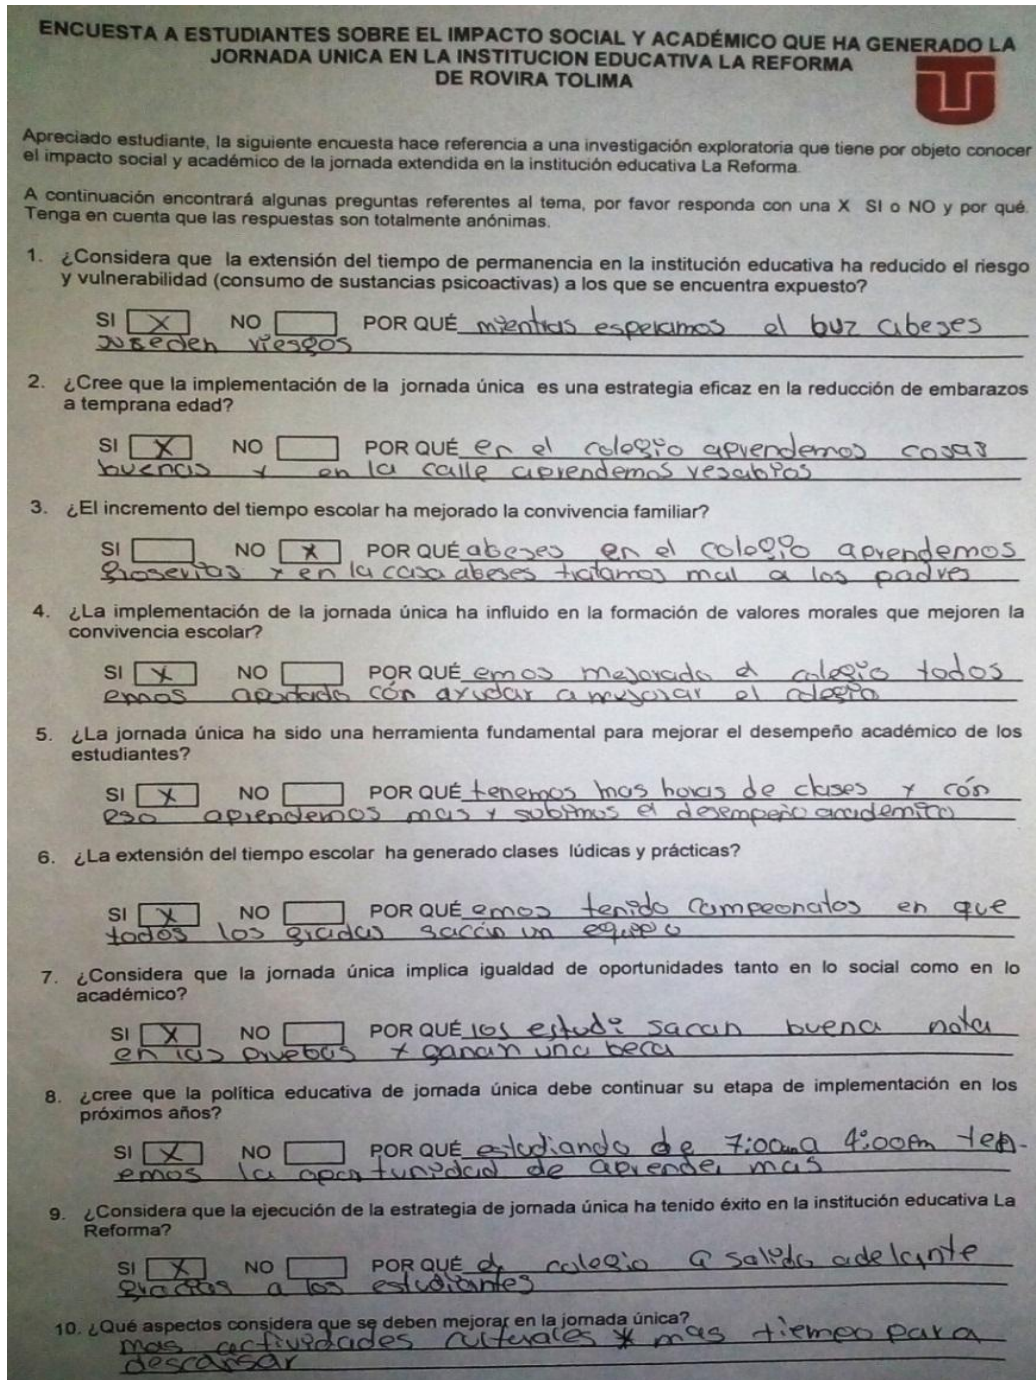 ENCUESTA A ESTUDIANTES SOBRE EL IMPACTO SOCIAL Y ACADÉMICO QUE HA GENERADO LA
JORNADA UNICA EN LA INSTITUCION EDUCATIVA LA REFORMA
DE ROVIRA TOLIMA
Apreciado estudiante, la siguiente encuesta hace referencia a una investigación exploratoria que tiene por objeto conocer
el impacto social y académico de la jornada extendida en la institución educativa La Reforma.
A continuación encontrará algunas preguntas referentes al tema, por favor responda con una X SI o NO y por qué.
Tenga en cuenta que las respuestas son totalmente anónimas.
1. ¿Considera que la extensión del tiempo de permanencia en la institución educativa ha reducido el riesgo
y vulnerabilidad (consumo de sustancias psicoactivas) a los que se encuentra expuesto?
SI X NO POR QUÉ mientras esperamos el buz abeses
suseden riesgos
2. ¿Cree que la implementación de la jornada única es una estrategia eficaz en la reducción de embarazos
a temprana edad?
SI X NO POR QUÉ en el colegio aprendemos cosas
buenas y en la calle aprendemos resabios
3. ¿El incremento del tiempo escolar ha mejorado la convivencia familiar?
SI NO X POR QUÉ abeses en el colegio aprendemos
groserias y en la casa abeses tratamos mal a los padres
4. ¿La implementación de la jornada única ha influido en la formación de valores morales que mejoren la
convivencia escolar?
SI X NO POR QUÉ emos mejorado el colegio todos
emos con ayudar a mejorar el colegio
5. ¿La jornada única ha sido una herramienta fundamental para mejorar el desempeño académico de los
estudiantes?
SI X NO POR QUÉ tenemos mas horas de clases y cón
eso aprendemos mas y subimos el desempeño academico
6. ¿La extensión del tiempo escolar ha generado clases lúdicas y prácticas?
SI X NO POR QUÉ emos tenido campeonatos en que
todos los grados sacan un
7. ¿Considera que la jornada única implica igualdad de oportunidades tanto en lo social como en lo
académico?
SI X NO POR QUÉ los estudi sacan buena nota
en las pruebas y ganan una beca
8. ¿cree que la política educativa de jornada única debe continuar su etapa de implementación en los
próximos años?
SI X NO POR QUÉ estudiando de 7:00am a 4:00pm ten-
emos la oportunidad de aprender mas
9. ¿Considera que la ejecución de la estrategia de jornada única ha tenido éxito en la institución educativa La
Reforma?
SI X NO POR QUÉ el colegio a salido adelante
gracias a los estudiantes
10. ¿Qué aspectos considera que se deben mejorar en la jornada única?
mas actividades culturales y mas tiempo para
descansar